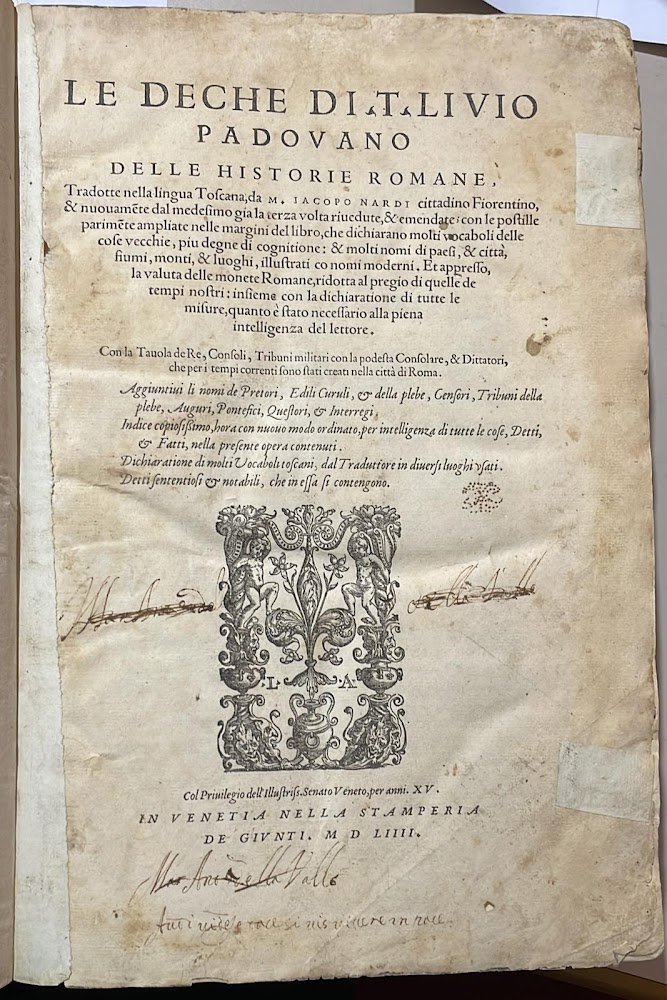 LE DECHE DI .T. LIVIO
PADOVANO
DELLE HISTORIE ROMANE,
Tradotte nella lingua Toscana, da M. IACOPO NARDI cittadino Fiorentino,
& nuouamẽte dal medesimo gia la terza volta riuedute, & emendate: con le postille
parimẽte ampliate nelle margini del libro, che dichiarano molti vocaboli delle
cose vecchie, piu degne di cognitione: & molti nomi di paesi, & città,
fiumi, monti, & luoghi, illustrati co nomi moderni. Et appresso,
la valuta delle monete Romane, ridotta al pregio di quelle de
tempi nostri: insieme con la dichiaratione di tutte le
misure, quanto è stato necessario alla piena
intelligenza del lettore.
Con la Tauola de Re, Consoli, Tribuni militari con la podesta Consolare, & Dittatori,
che per i tempi correnti sono stati creati nella città di Roma.
Aggiuntiui li nomi de Pretori, Edili Curuli, & della plebe, Censori, Tribuni della
plebe, Auguri, Pontefici, Questori, & Interregi,
Indice copiosissimo, hora con nuouo modo ordinato, per intelligenza di tutte le cose, Detti,
& Fatti, nella presente opera contenuti.
Dichiaratione di molti Vocaboli toscani, dal Traduttore in diuersi luoghi vsati.
Detti sententiosi & notabili, che in essa si contengono.
L. A
Col Priuilegio dell'Illustriss. Senato Veneto, per anni. XV.
IN VENETIA NELLA STAMPERIA
DE GIVNTI. M D LIIII.
Valle